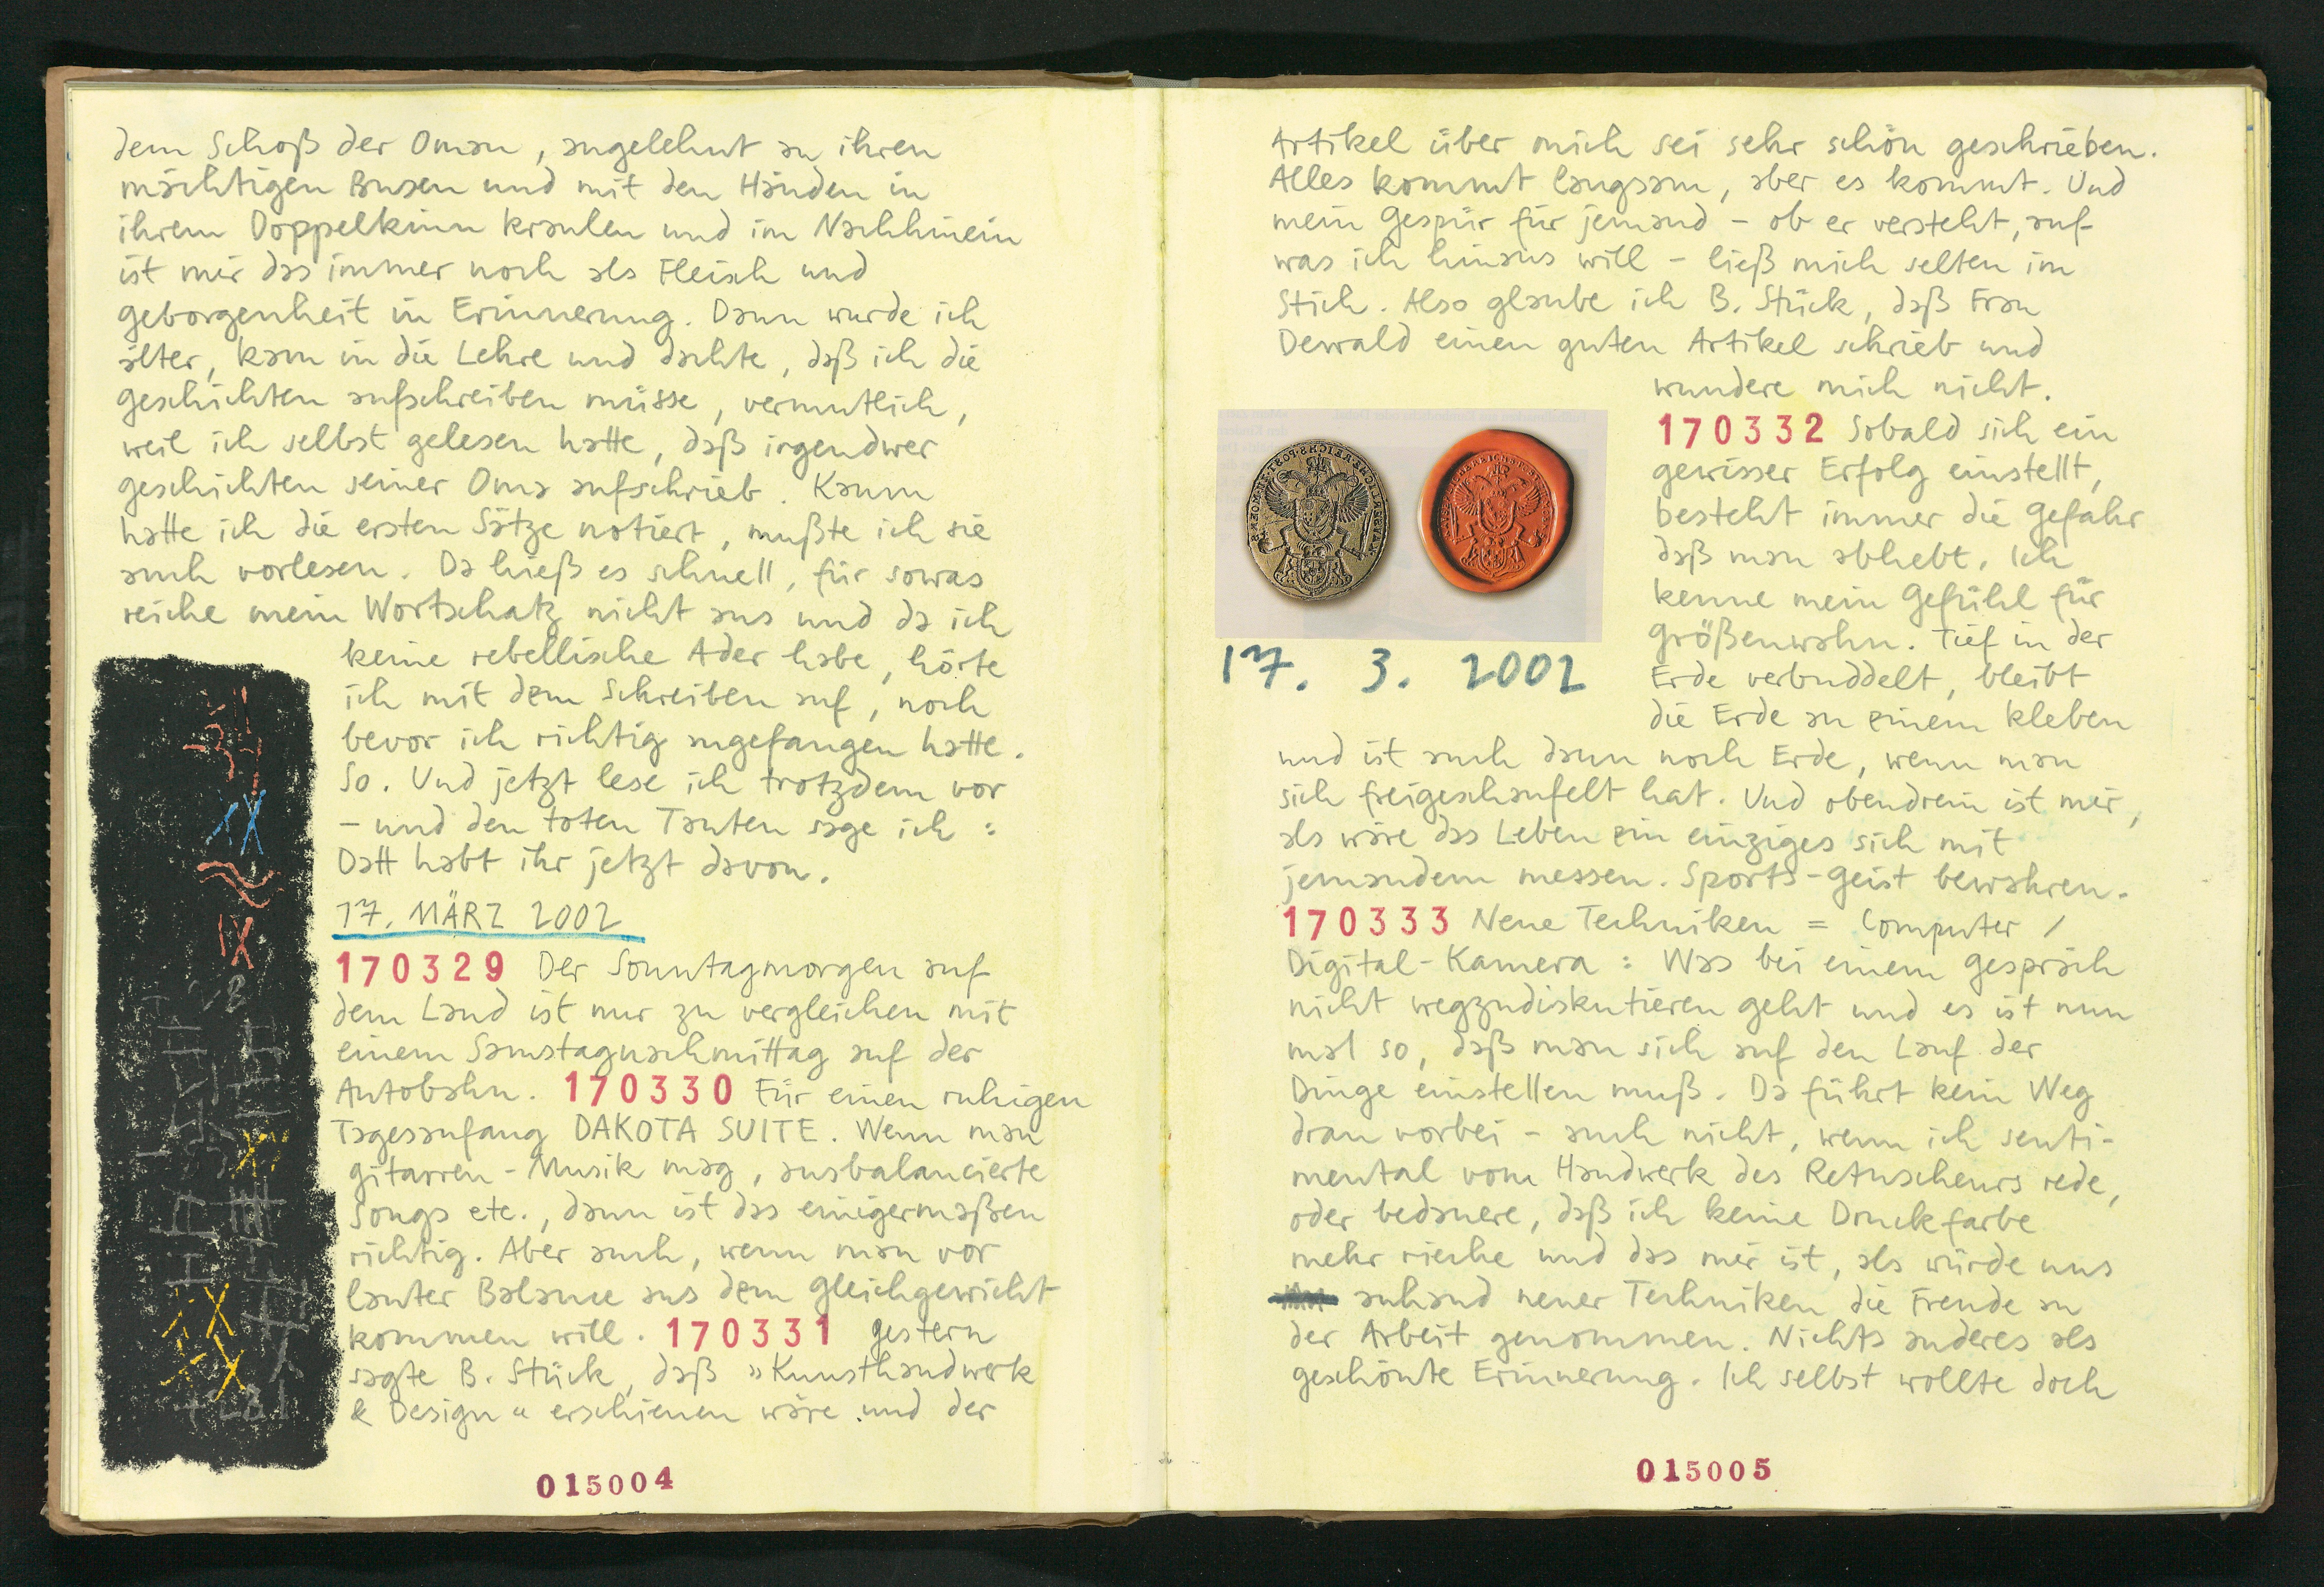 dem Schoß der Oman, angelehnt an ihren
mächtigen Busen und mit den Händen in
ihrem Doppelkinn kraulen und im Nachhinein
ist mir das immer noch als Fleisch und
Geborgenheit in Erinnerung. Dann wurde ich
älter, kam in die Lehre und dachte, daß ich die
Geschichten aufschreiben müsse, vermutlich,
weil ich selbst gelesen hatte, daß irgendwer
Geschichten seiner Oma aufschrieb. Kaum
hatte ich die ersten Sätze notiert, mußte ich sie
auch vorlesen. Da hieß es schnell, für sowas
reiche mein Wortschatz nicht aus und da ich
keine rebellische Ader habe, hörte
ich mit dem Schreiben auf, noch
bevor ich richtig angefangen hatte.
So. Und jetzt lese ich trotzdem vor
– und den toten Tanten sage ich :
Datt habt ihr jetzt davon.
17. MÄRZ 2002
170329 Der Sonntagmorgen auf
dem Land ist nur zu vergleichen mit
einem Samstagnachmittag auf der
Autobahn. 170330 Für einen ruhigen
Tagesanfang DAKOTA SUITE. Wenn man
Gitarren-Musik mag, ausbalancierte
Songs etc., dann ist das einigermaßen
richtig. Aber auch, wenn man vor
lauter Balance aus dem Gleichgewicht
kommen will. 170331 Gestern
sagte B. Stück, daß »Kunsthandwerk
& Design« erschienen wäre und der
015004
Artikel über mich sei sehr schön geschrieben.
Alles kommt langsam, aber es kommt. Und
mein Gespür für jemand – ob er versteht, auf
was ich hinaus will – ließ mich selten im
Stich. Also glaube ich B. Stück, daß Frau
Dewald einen guten Artikel schrieb und
wundere mich nicht.
17. 3. 2002
170332 Sobald sich ein
gewisser Erfolg einstellt,
besteht immer die Gefahr
daß man abhebt. Ich
kenne mein Gefühl für
Größenwahn. Tief in der
Erde verbuddelt, bleibt
die Erde an einem kleben
und ist auch dann noch Erde, wenn man
sich freigeschaufelt hat. Und obendrein ist mir,
als wäre das Leben ein einziges sich mit
jemandem messen. Sports-Geist bewahren.
170333 Neue Techniken = Computer /
Digital-Kamera : Was bei einem Gespräch
nicht wegzudiskutieren geht und es ist nun
mal so, daß man sich auf den Lauf der
Dinge einstellen muß. Da führt kein Weg
dran vorbei – auch nicht, wenn ich senti-
mental vom Handwerk des Retuscheurs rede,
oder bedauere, daß ich keine Druckfarbe
mehr rieche und das mir ist, als würde uns
anhand neuer Techniken die Freude an
der Arbeit genommen. Nichts anderes als
geschönte Erinnerung. Ich selbst wollte doch
015005